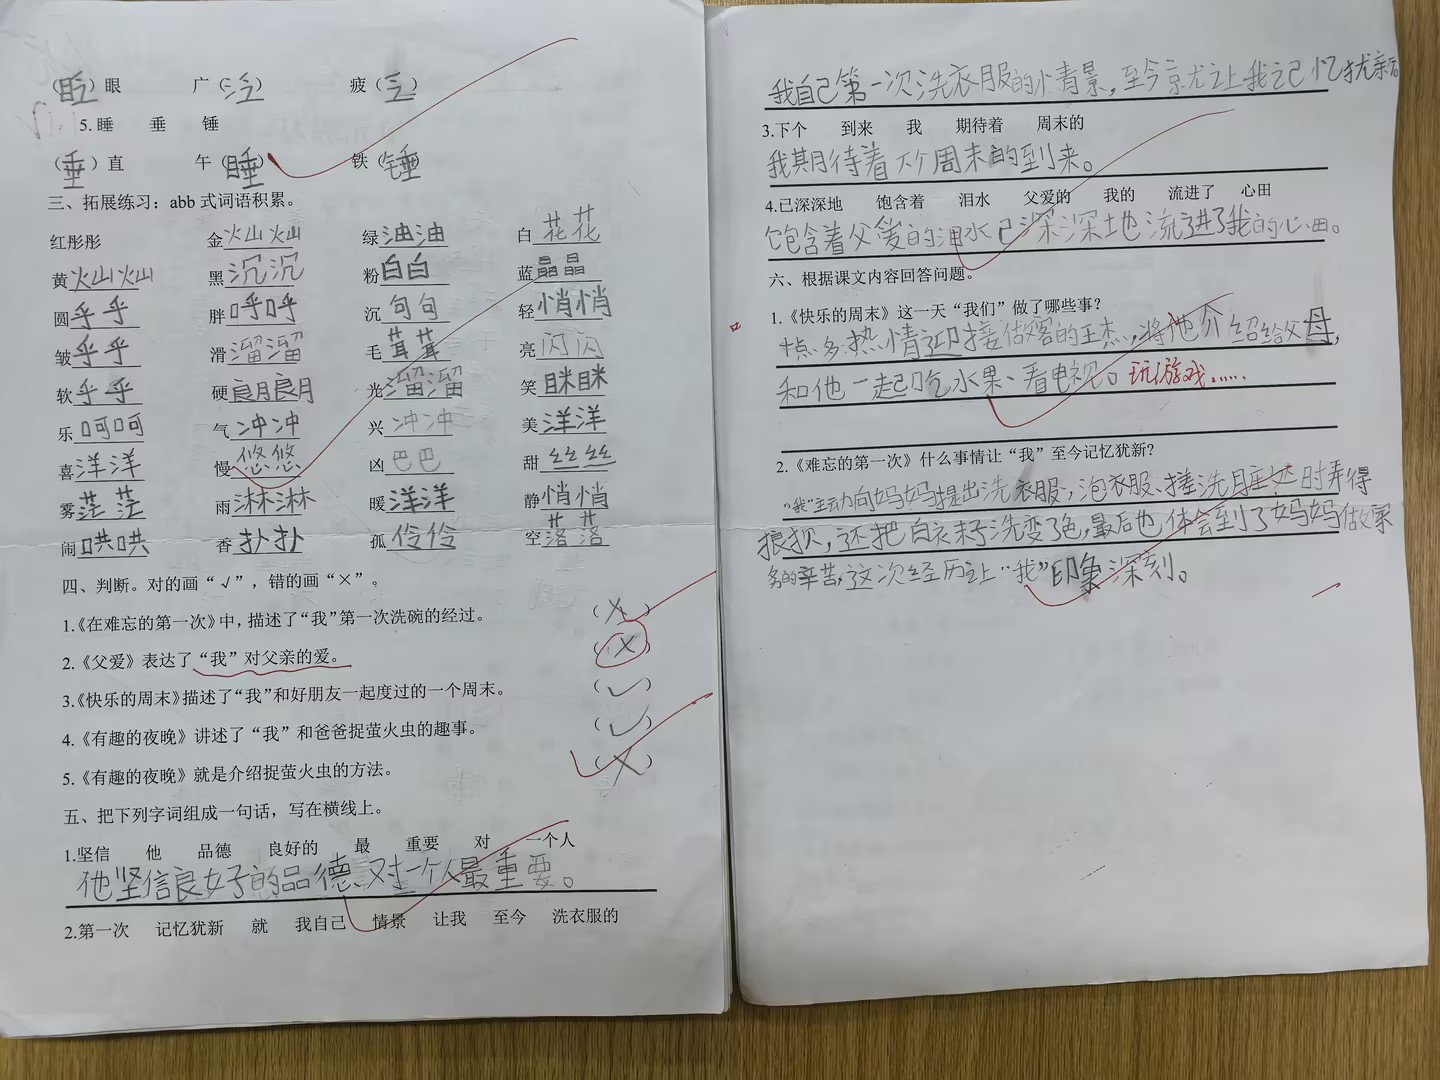 （眨）眼 广（泛） 疲（乏）
5.睡 垂 锤
（垂）直 午（睡） 铁（锤）
三、拓展练习：abb 式词语积累。
红彤彤 金灿灿 绿油油 白花花
黄灿灿 黑沉沉 粉白白 蓝晶晶
圆乎乎 胖呼呼 沉句句 轻悄悄
皱乎乎 滑溜溜 毛茸茸 亮闪闪
软乎乎 硬 光溜溜 笑眯眯
乐呵呵 气冲冲 兴冲冲 美洋洋
喜洋洋 慢悠悠 凶巴巴 甜丝丝
雾茫茫 雨淋淋 暖洋洋 静悄悄
闹哄哄 香扑扑 孤伶伶 空落落
四、判断。对的画“√”，错的画“×”。
1.《在难忘的第一次》中，描述了“我”第一次洗碗的经过。 （×）
2.《父爱》表达了“我”对父亲的爱。 （×）
3.《快乐的周末》描述了“我”和好朋友一起度过的一个周末。 （√）
4.《有趣的夜晚》讲述了“我”和爸爸捉萤火虫的趣事。 （√）
5.《有趣的夜晚》就是介绍捉萤火虫的方法。 （×）
五、把下列字词组成一句话，写在横线上。
1.坚信 他 品德 良好的 最 重要 对 一个人
他坚信良好的品德、对一个人最重要。
2.第一次 记忆犹新 就 我自己 情景 让我 至今 洗衣服的
我自己第一次洗衣服的情景，至今就让我记忆犹新
3.下个 到来 我 期待着 周末的
我期待着下个周末的到来。
4.已深深地 饱含着 泪水 父爱的 我的 流进了 心田
饱含着父爱的泪水已深深地流进了我的心田。
六、根据课文内容回答问题。
1.《快乐的周末》这一天“我们”做了哪些事？
热情迎接做客的王杰，将他介绍给父母，
和他一起吃水果、看电视。玩游戏……
2.《难忘的第一次》什么事情让“我”至今记忆犹新？
“我”主动向妈妈提出洗衣服，泡衣服、搓洗 时弄得
狼狈，还把白衣 子洗变了色，最后他体会到了妈妈做家
务的辛苦，这次经历让“我”印象深刻。